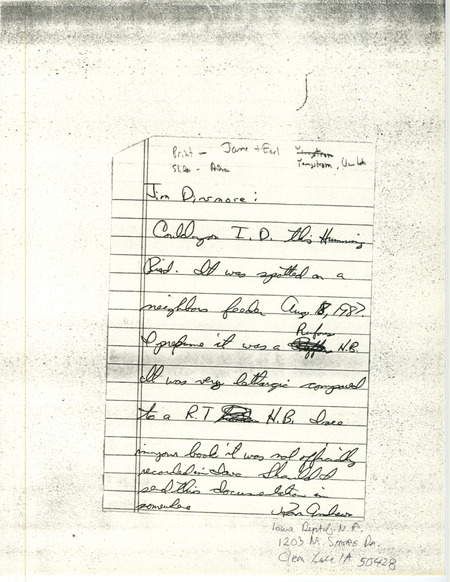 Print - Jane + Earl
Yengstrom, Clear Lake
Slides -
Jim Dinsmore:
Could you I. D. this Humming
Bird. It was spotted on a
neighbors feeder Aug 18, 1987.
Rufous
I presume it was a H.B.
It was very lethargic compared
to a R.T H.B. I see
in your book it was not officially
recorded in Iowa. Should I
send this documentation in
somewhere
Iowa Reptile N. F.
1203 N. Shore Dr.
Clear Lake IA 50428